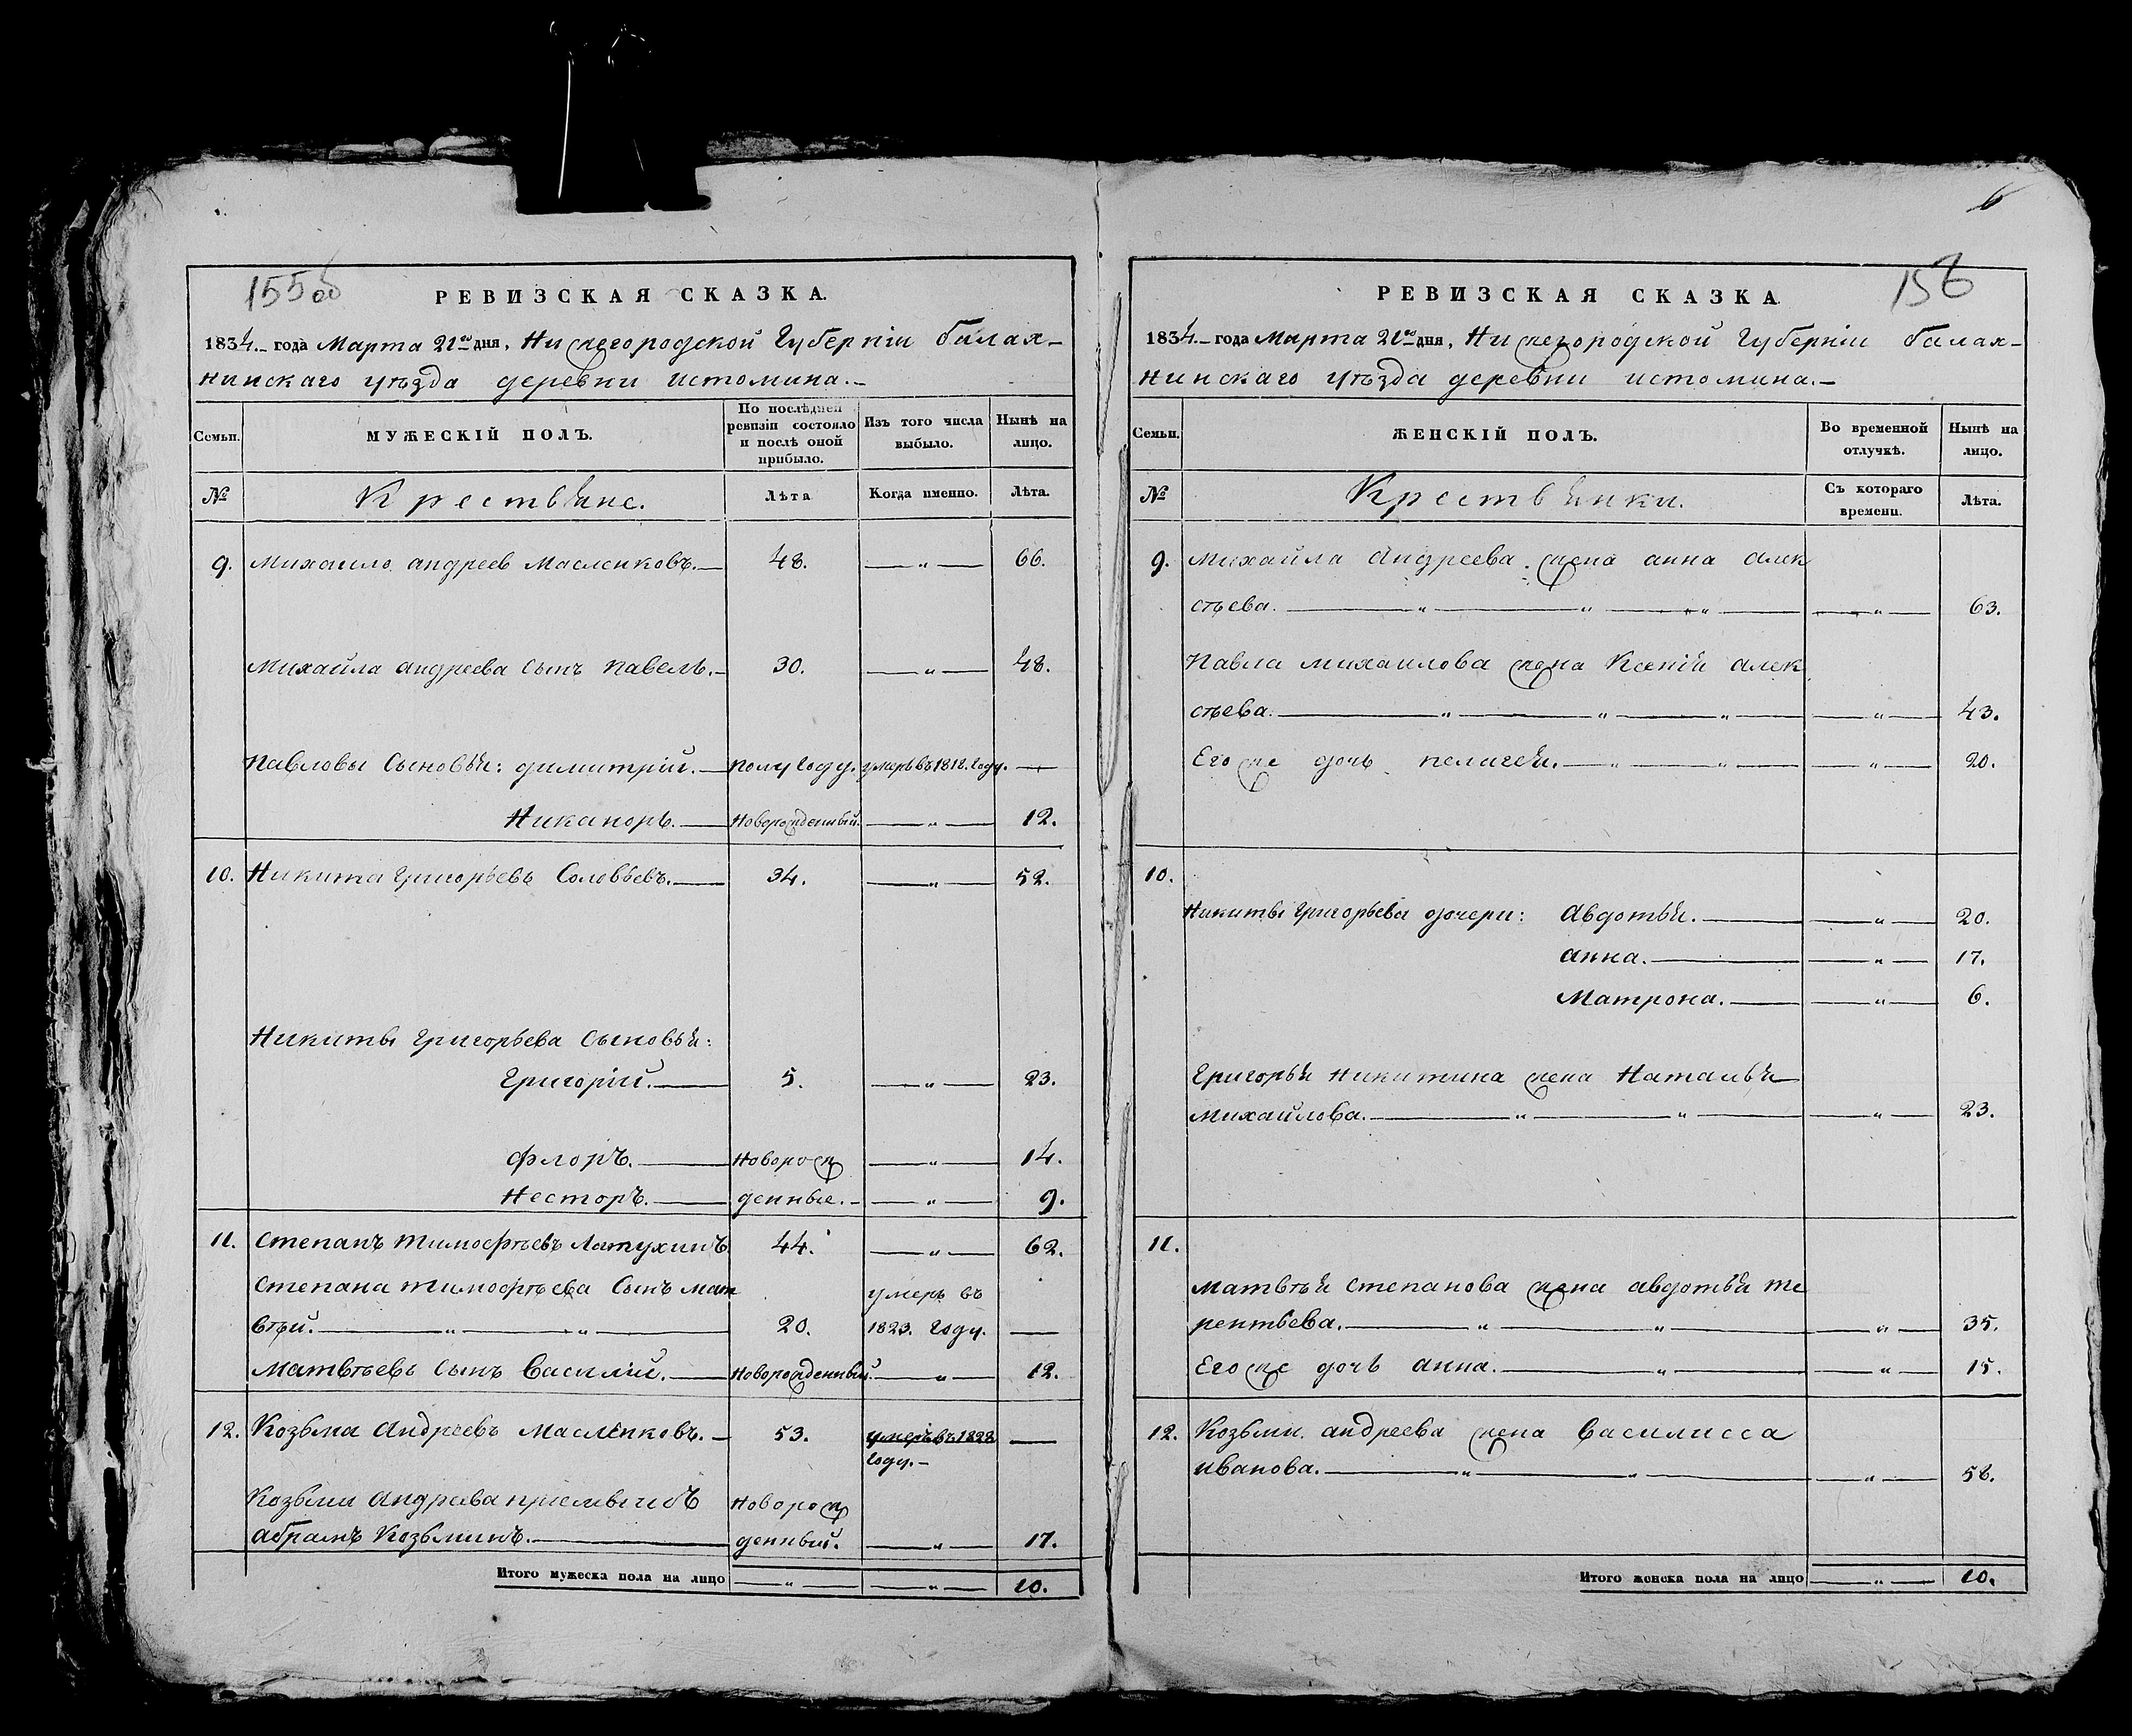 6
155об
РЕВИЗСКАЯ СКАЗКА.
1834.– года Марта 21го дня, Нижегородской Губерніи балах–
нинскаго уѣзда деревни истомина.–
Семьи.
МУЖЕСКІЙ ПОЛЪ.
По послѣдней ревизіи состояло и послѣ оной прибыло.
Изъ того числа выбыло.
Нынѣ на лицо.
№
Крестьяне.
Лѣта
Когда именно.
Лѣта.
9. михаило андреев Масленковъ.— 48. —„— 66.
михайла андреева сынъ павелъ.– 30. —„— 48.
павловы сыновья: димитрій.— полу году. умеръ въ 1818. году. —
Никаноръ.— Новорожденный. —„— 12.
10. Никита Григорьевъ Соловьевъ.— 34. —„— 52.
Никиты Григорьева сыновья:
Григорій.— 5. —„— 23.
флоръ.— Новорож —„— 14.
Несторъ.— денные.– —„— 9.
11. степанъ тимофѣевъ Латухинъ 44. —„— 62.
степана тимофѣева сынъ мат умеръ въ
вѣй.— „ — „ — 20. 1823. году. —
Матвѣевъ сынъ Василій.— Новорожденный. —„— 12.
12. Козьма Андреевъ Масленковъ.– 53. умеръ въ 1828 —
году.–
Козьмы Андреева пріемышъ Новорож
абрамъ Козьминъ.— денный. —„— 17.
Итого мужеска пола на лицо —„— —„— 10.
156
РЕВИЗСКАЯ СКАЗКА
1834.– года Марта 21го дня, Нижегородской Губерніи балах–
нинскаго уѣзда деревни истомина.–
Семьи.
ЖЕНСКІЙ ПОЛЪ.
Во временной отлучкѣ.
Нынѣ на лицо.
№
Крестьянки.
Съ котораго времени.
Лѣта.
9. михайла Андреева жена анна алек
сѣева.— „ — „ — „ — —„— 63.
Павла михаилова жена Ксенія алек
сѣева.— „ — „ — „ — —„— 43.
Его же дочь пелагея.— „ — „ — —„— 20.
10.
Никиты Григорьева дочери: авдотья.— —„— 20.
анна.— —„— 17.
Матрона.— —„— 6.
Григорья никитина жена Наталья
михайлова.— „ — „ — —„— 23.
11.
матвѣя степанова жена авдотья те
рентьева.— „ — „ — —„— 35.
Его же дочь анна.— „ — —„— 15.
12. Козьмы андреева жена Василисса
иванова.— „ — „ — —„— 58.
Итого женска пола на лицо —„— 10.